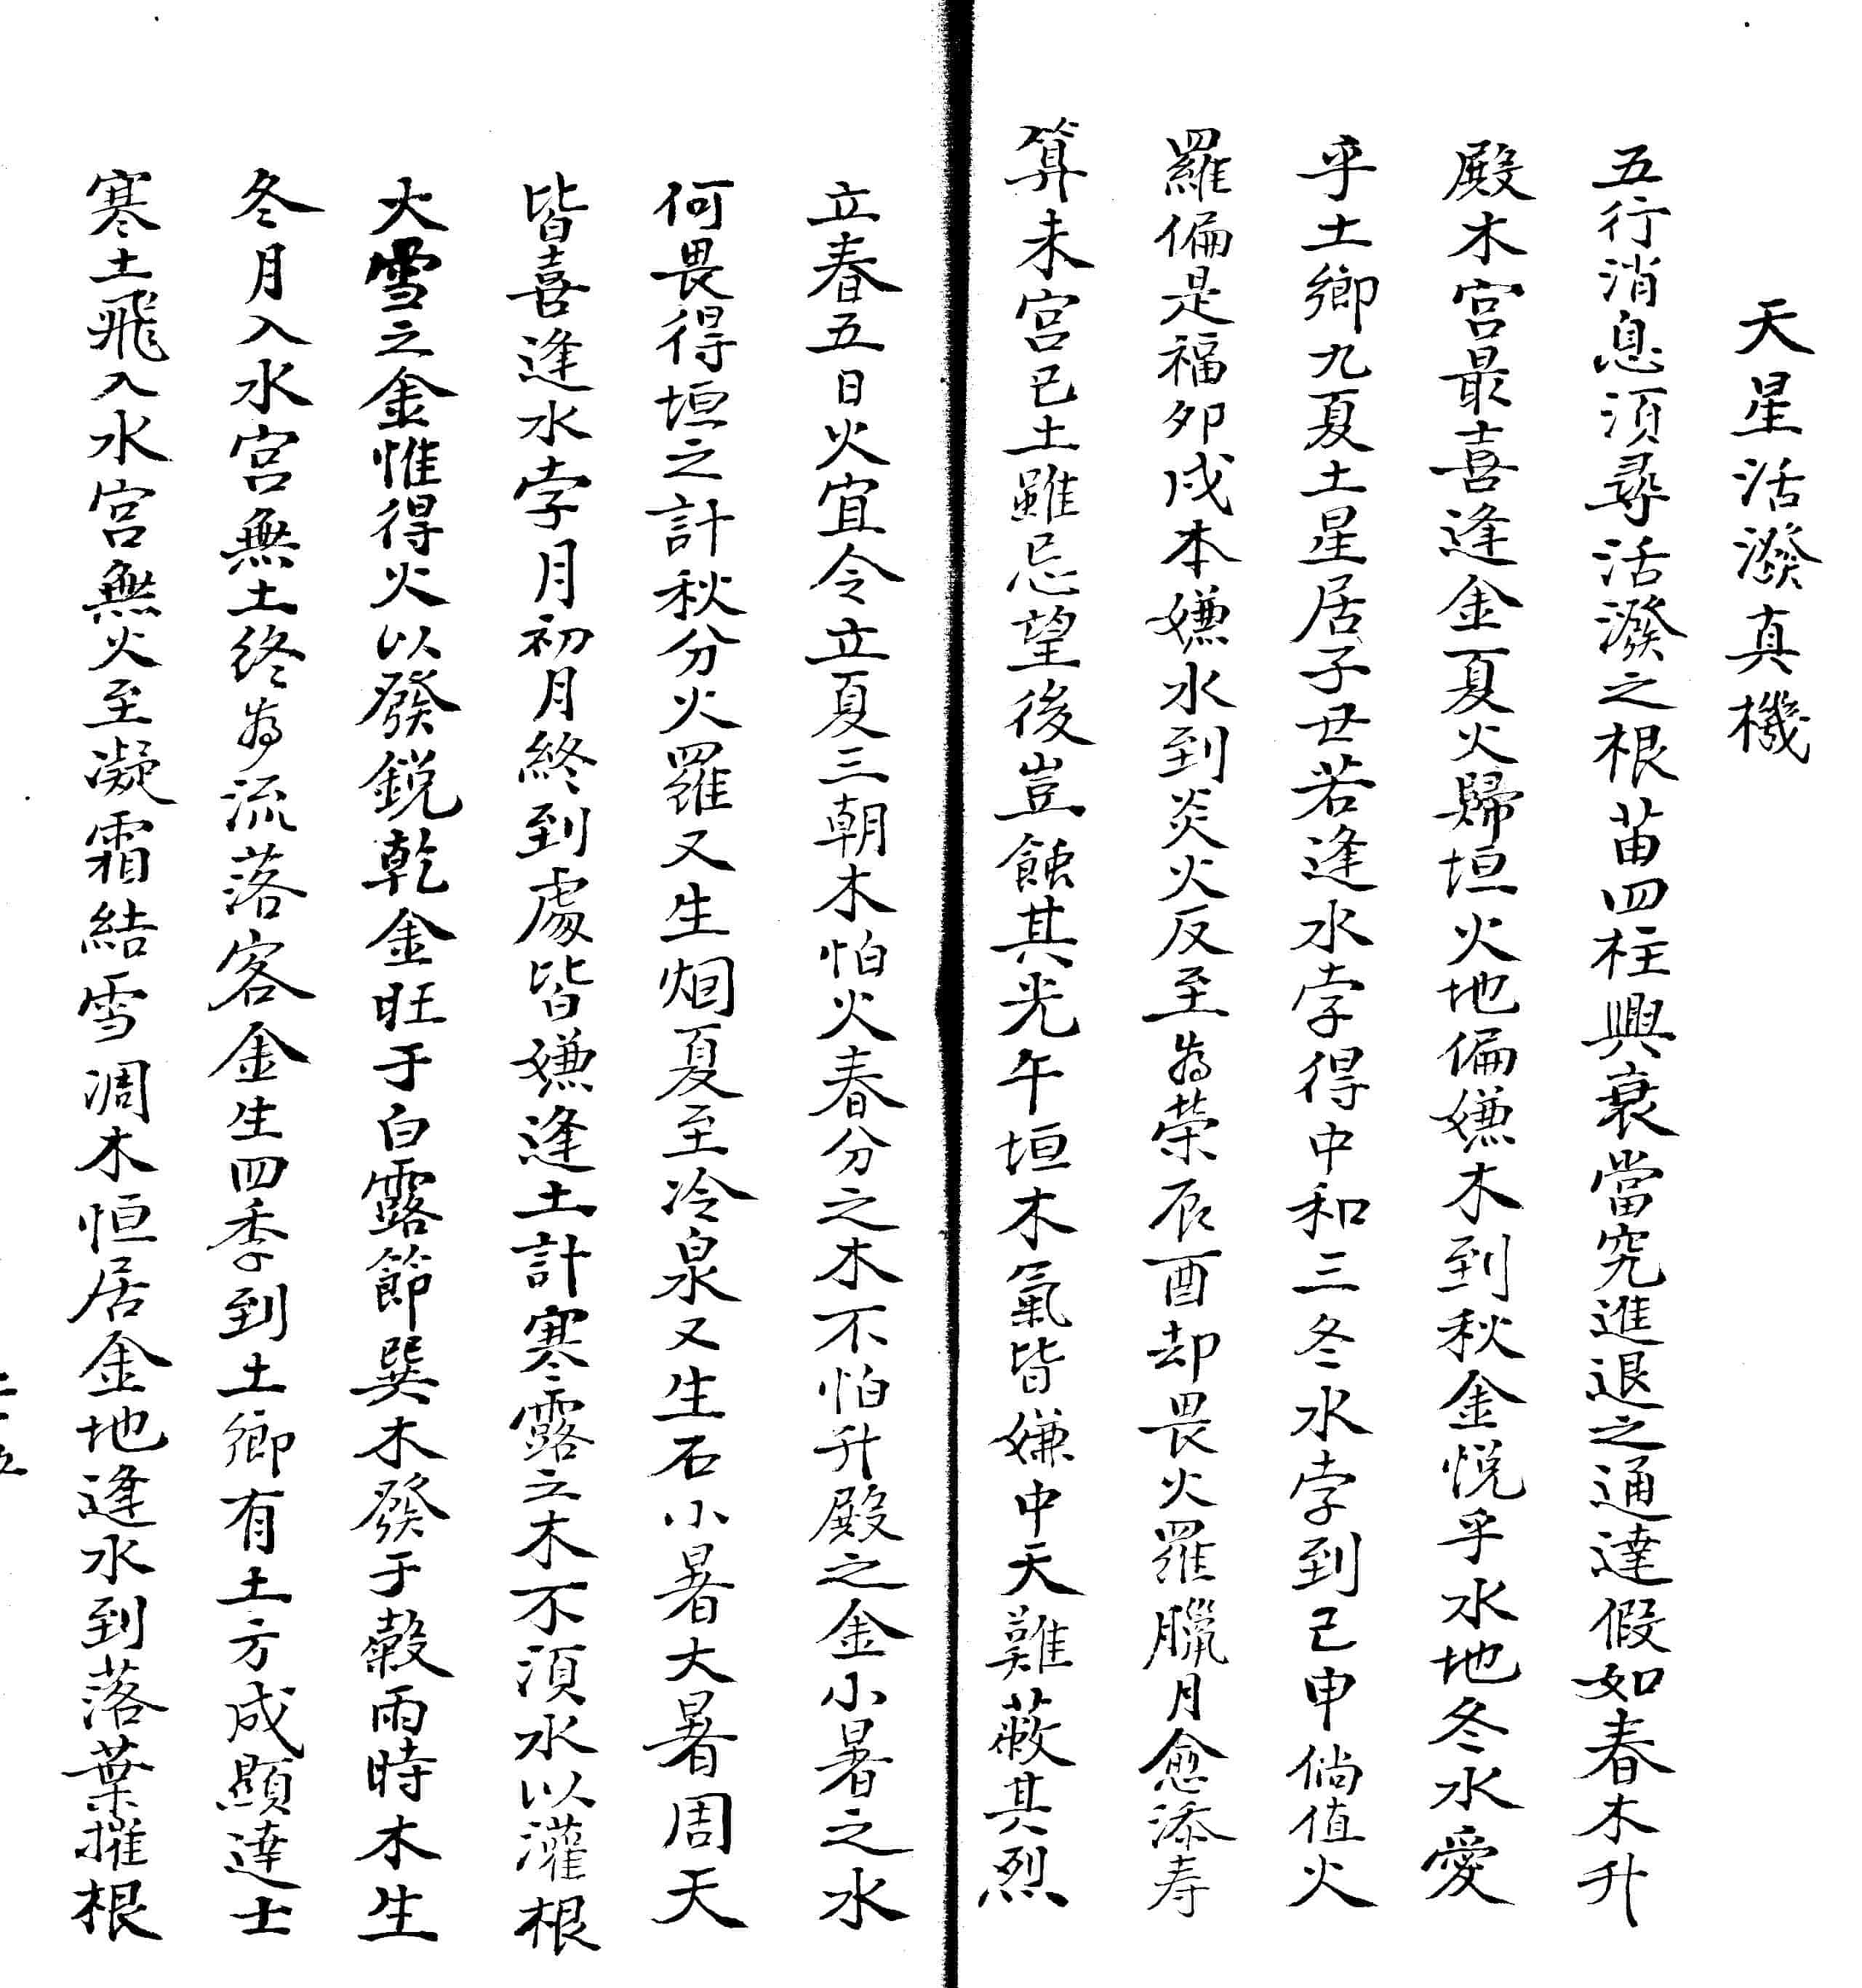 天星活潑真機
五行消息須尋活潑之根苗四柱興衰當究進退之通達假如春木升
殿木宮最喜逢金夏火歸垣火地偏嫌木到秋金悅乎水地冬水愛
乎土鄉九夏土星居子丗若逢水孛得中和三冬水孛到己申倘值火
羅偏是福夘戌本嫌水到炎火反至為荣辰酉却畏火羅臘月愈添寿
算未宮已土雖忌望後豈蝕其光午垣木氣皆嫌中天難蔽其烈
立春五日火宜令立夏三朝木怕火春分之木不怕升殿之金小暑之水
何畏得垣之計秋分火羅又生烟夏至冷泉又生石小暑大暑周天
皆喜逢水孛月初月終到處皆嫌逢土計寒露之木不須水以灌根
大雪之金惟得火以發銳乾金旺于白露節巽木發于穀雨時木生
冬月入水宮無土終為流落客金生四季到土鄉有土方成顯達士
寒土飛入水宮無火至凝霜結雪凋木恒居金地逢水到落葉摧根